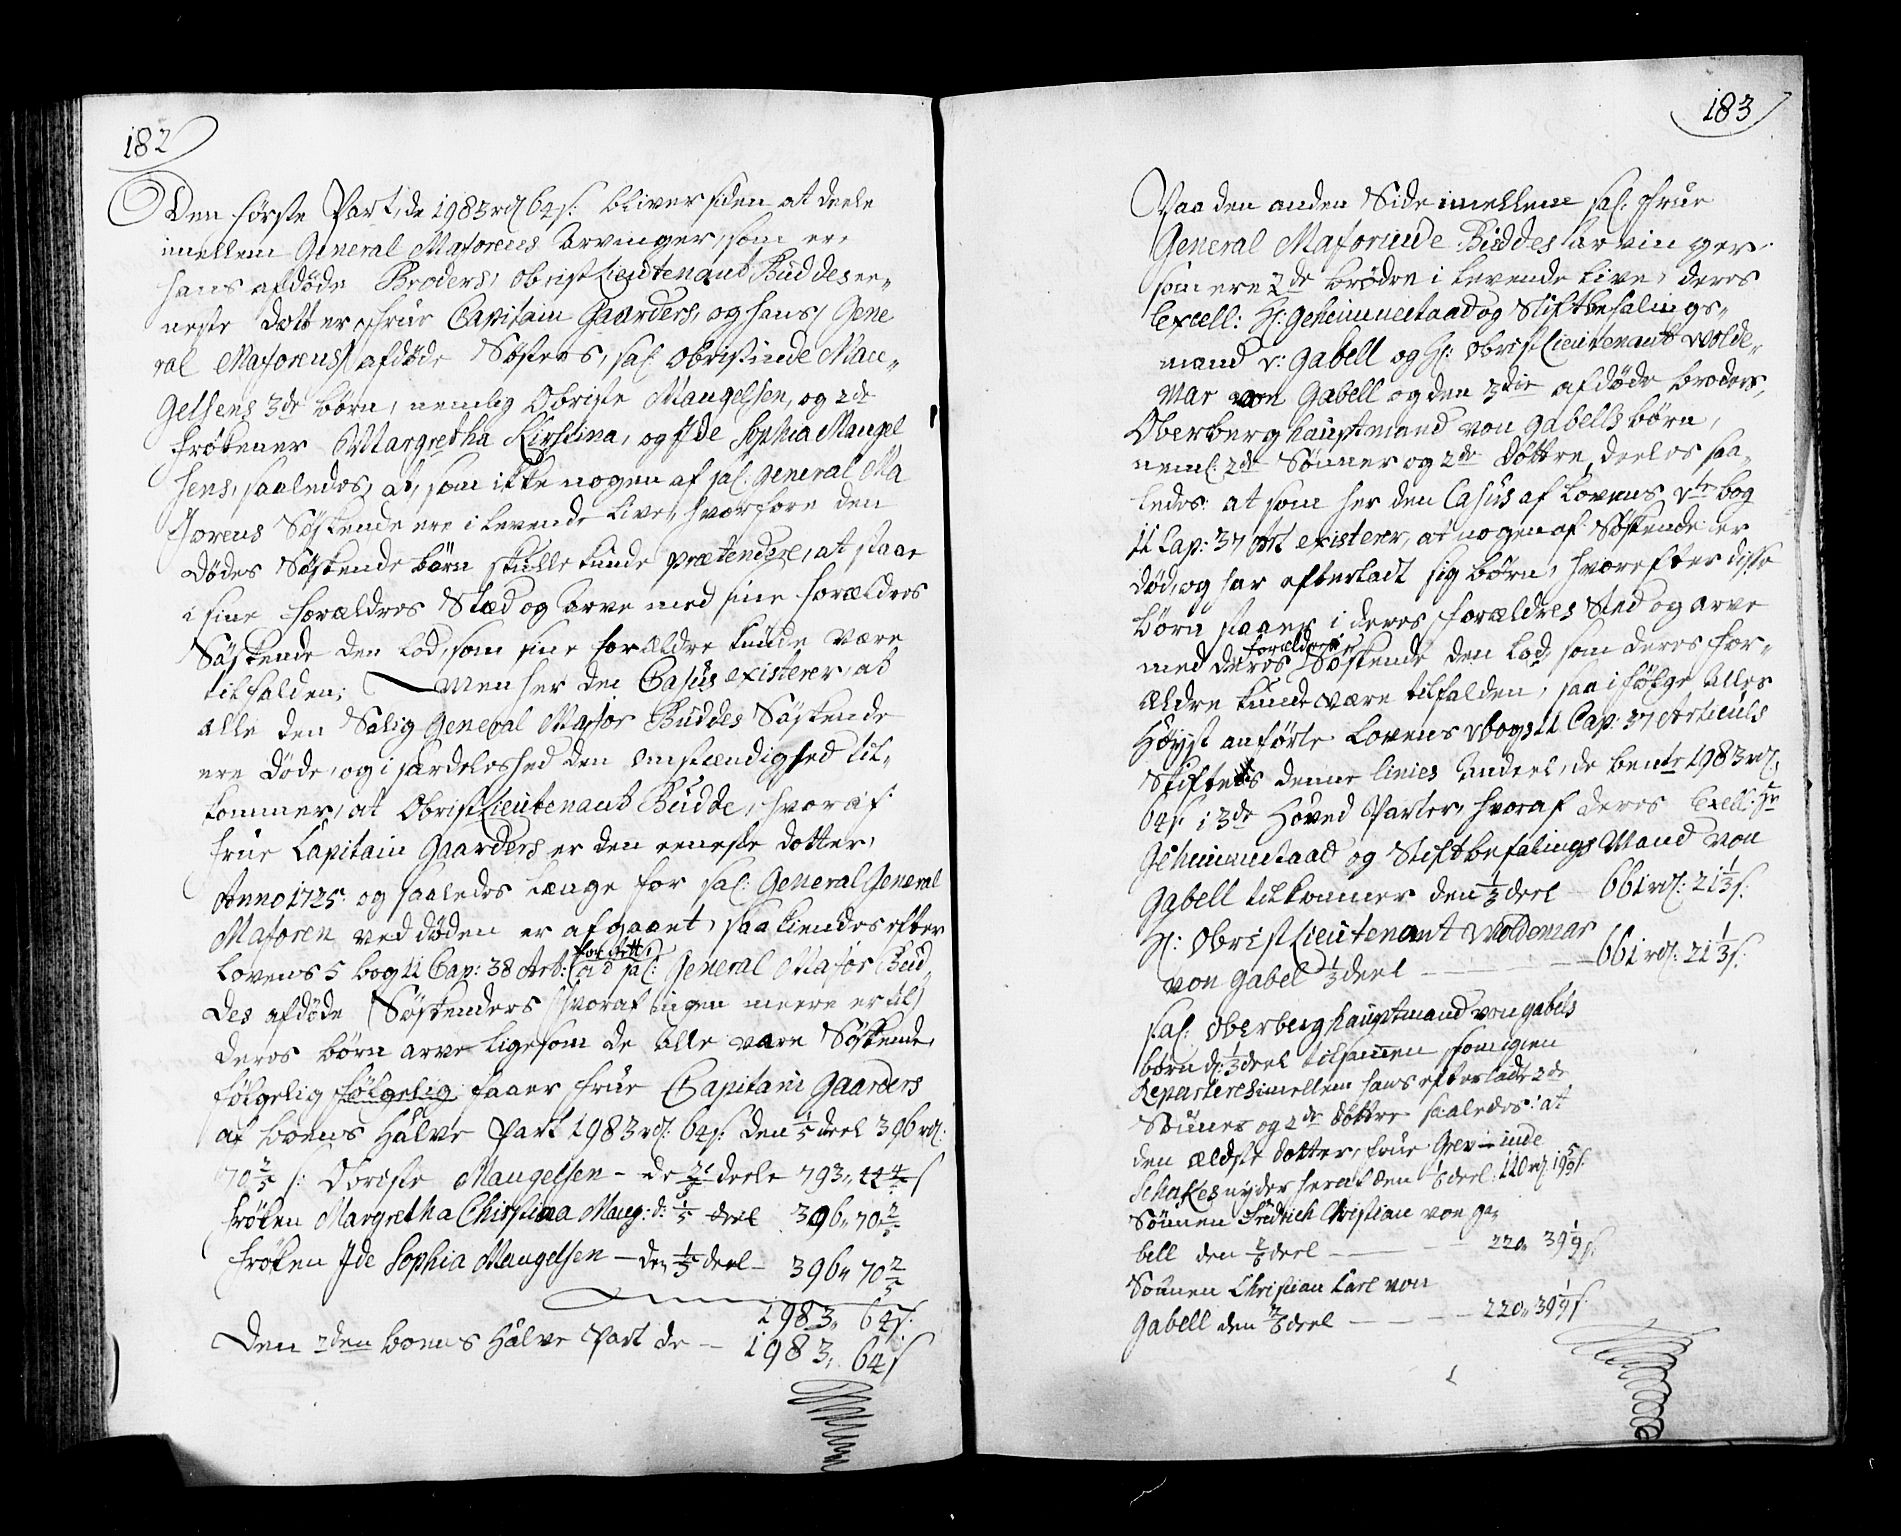 182
Den første Part, de 1983 rd 64 s: bliver siden at deele
imellem General Majorens Arvinger, som er,
hans afdøde Broders, Obrist Lieutenant Buddes ee-
neste Dotter, Frue Capitain Gaarders, og hans, Gene
ral Majorens, afdøde Søsters, sal. Obristinde Man-
gelsens 3de Børn, nemlig Obriste Mangelsen, og 2de
Frøkener Margretha Kirstina, og Ide Sophia Mangel
sens, saaledes, at, som ikke nogen af sal. General Ma
jorens Søskende ere i levende Live, hvorfore den
Dødes Søskende Børn skulle kunde prætendere, at staae
i sine Forældres Stæd og Arve med sine Forældres
Søskende den Lod, som sine Forældre kunde være
tilfalden; Men her den Casus existerer, at
alle den Salig General Major Buddes Søskende
ere Døde, og i særdeleshed den Omstændighed til-
kommer, at Obrist Lieutenant Budde, hvoraf
Frue Capitain Gaarders er den eeneste Dotter,
Anno 1725 og saaledes længe for sal: General General
Majoren ved døden er afgaaet, saa kiendes efter
Lovens 5 bogs 2 Cap: 38 Art: for Rett: at sal: General Major Bud
des afdøde Søskenders (hvoraf ingen meere er til)
deres børn arve ligesom de Alle vare Søskende,
følgelig følgelig faaer Frue Capitain Gaarders
af boens Halve Part 1983 rd: 64 s: den 1/5 deel 396 rd:
70 2/5 s: Obriste Mangelsen - de 2/5 deele 793 " 44 4/5 s
Frøken Margretha Christina Mang: d: 1/5 deel 396 " 70 2/5
Frøken Ide Sophia Mangelsen - den 1/5 deel - 396 " 70 2/5
1983 " 64 s:
Den 2den boens Halve Part de - 1983 " 64 s
183
Paa den anden Side imellem sal. Frue
General Majorinde Buddes arvinger
som ere 2de brødre i levende Live, deres
Excell: Hr. Geheimeraad og Stiftbefalings-
mand v: Gabell og Hr: Obrist Lieutenant Wolde-
mar von Gabell og den 3die afdøde broders,
Oberberghauptmand von Gabells børn,
neml: 2de Sønner og 2de Døttre, deeles saa-
ledes: at som her den Casus af Lovens 5te bog
2 Cap: 37 Art existerer, at nogen af Søskende er
død, og har efterladt sig børn, hvorefter disse
børn staaer i deres Forældres Sted og arve
med deres Forældres Søskende den Lod, som deres For-
ældre kunde være tilfalden, saa i følge Alles
Høyst anførte Lovens 5 bogs 2 Cap: 37 Articuls
Skiftes denne Linies Andeel, de bente 1983 rd,
64 s. i 3de Hoved Parter, hvoraf Deres Excell: Hr
Geheimeraad og Stiftbefalings Mand von
Gabell tilkommer den 1/3 deel - 661 rd: 21 1/3 s:
Hr: Obrist Lieutenant Woldemar
von Gabel 1/3 deel - - - - 661 rd: 21 1/3 s:
Sal: Oberberghauptmand von Gabels
børn d: 1/3 deel tilsammen som igien
Reparteres imellem hans efterladte 2de
Sønner og 2de Døttre saaledes: at
den ældste Dotter, Frue Grevinde
Schakes nyder heraf den 1/6 deel: 110 rd 19 5/9 s:
Sønnen Fridrich Christian von Ga-
bell den 2/6 deel - - - 220 " 39 1/9 s:
Sønnen Christian Carl von
Gabell den 2/6 deel - - - - 220 " 39 1/9 s: